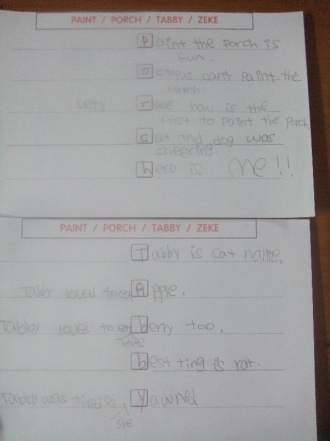 PAINT / PORCH / TABBY / ZEKE
Paint the porch is
fun.
can't paint the
Lets race how is the
first to paint the porch
cat and dog was
cheering.
here is me!!
PAINT / PORCH / TABBY / ZEKE
Tabby is cat name.
Tabby loved to eat Apple.
Tabby loved to eat berry too.
best ting is rat.
Tabby was tired so she yawned